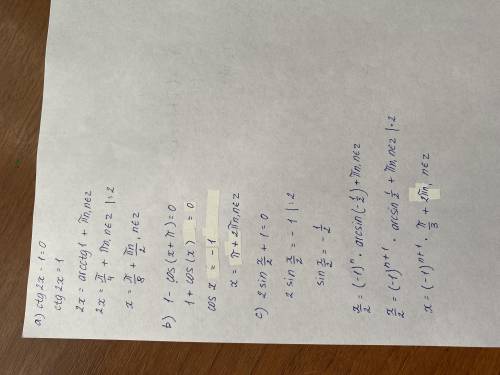 a) ctg 2x - 1 = 0
ctg 2x = 1
2x = arcctg 1 + πn, n∈z
2x = π/4 + πn, n∈z |:2
x = π/8 + πn/2, n∈z
b) 1 - cos(x + π) = 0
1 + cos(x) = 0
cos x = -1
x = π + 2πn, n∈z
c) 2 sin x/2 + 1 = 0
2 sin x/2 = -1 |:2
sin x/2 = -1/2
x/2 = (-1)ⁿ · arcsin(-1/2) + πn, n∈z
x/2 = (-1)ⁿ⁺¹ · arcsin 1/2 + πn, n∈z |·2
x = (-1)ⁿ⁺¹ · π/3 + 2πn, n∈z